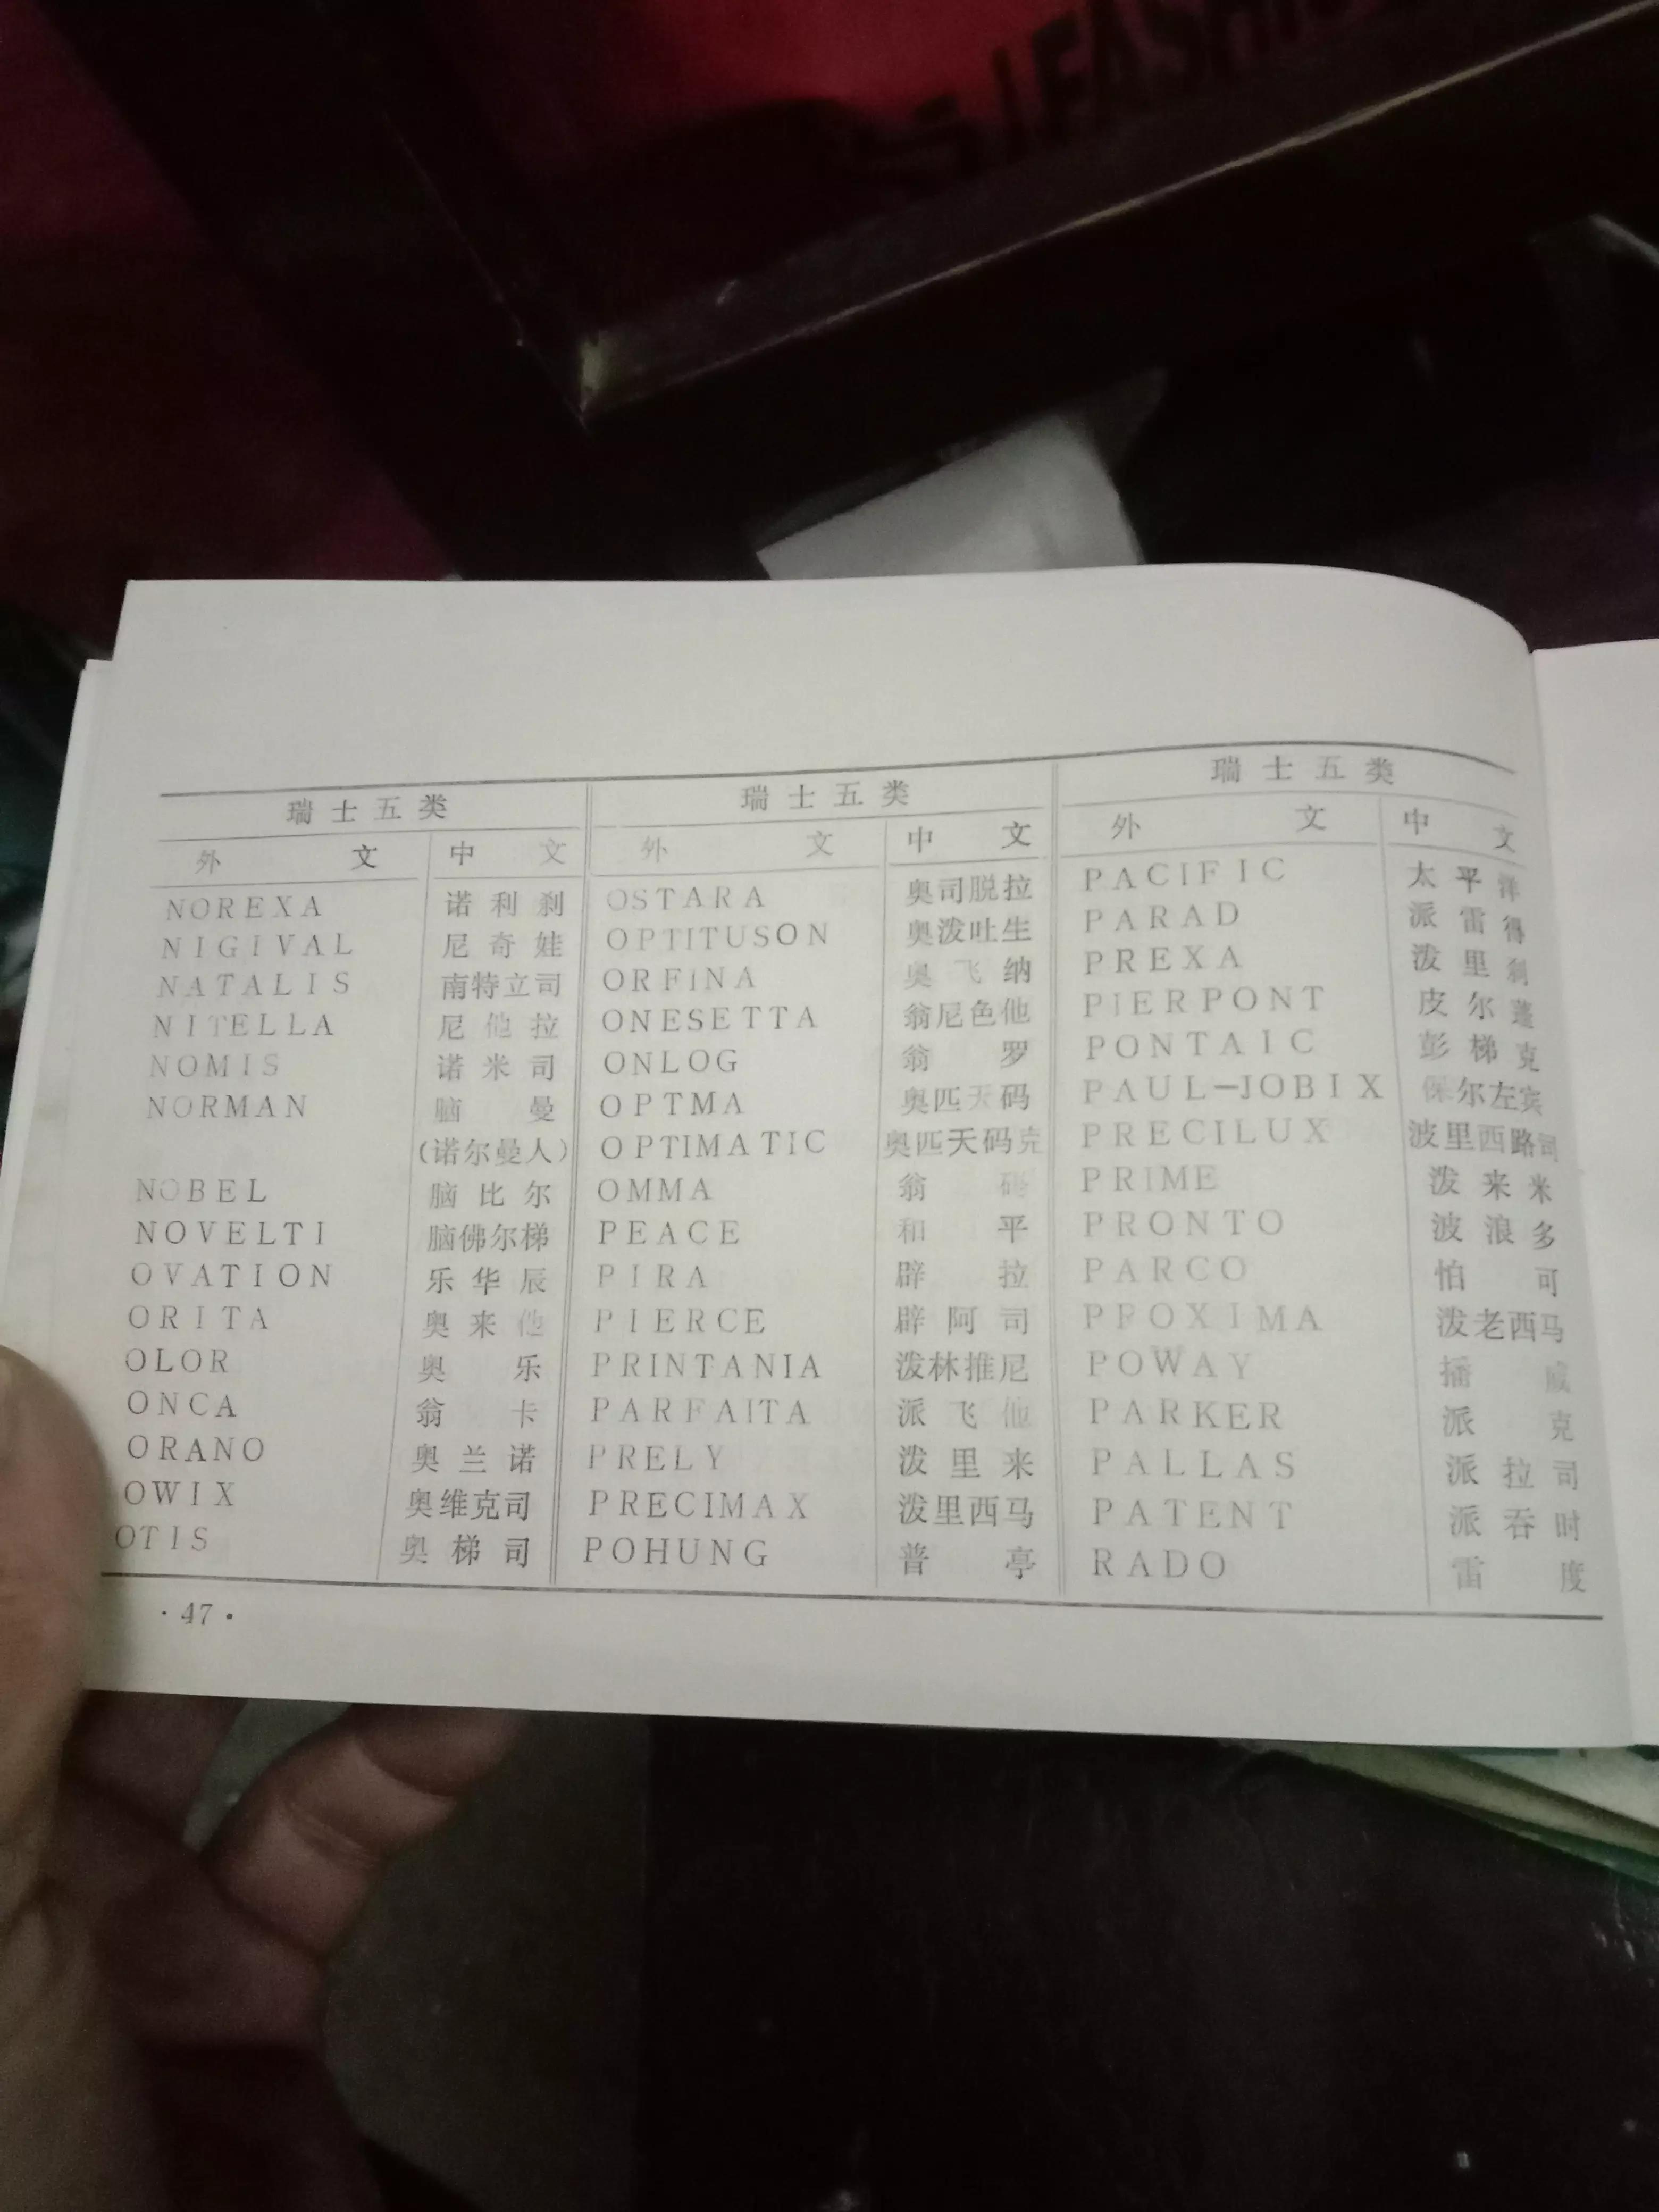 FASHI
瑞士五类 瑞士五类 瑞士五类
外文 中文 外文 中文 外文 中文
NOREXA 诺利刹 OSTARA 奥司脱拉 PACIFIC 太平洋
NIGIVAL 尼奇娃 OPTITUSON 奥泼吐生 PARAD 派雷得
NATALIS 南特立司 ORFINA 奥飞纳 PREXA 泼里刹
NITELLA 尼他拉 ONESETTA 翁尼色他 PIERPONT 皮尔蓬
NOMIS 诺米司 ONLOG 翁罗 PONTAIC 彭梯克
NORMAN 脑曼 OPTMA 奥匹天码 PAUL-JOBIX 保尔左宾
(诺尔曼人) OPTIMATIC 奥匹天码克 PRECILUX 波里西路司
NOBEL 脑比尔 OMMA 翁码 PRIME 泼来米
NOVELTI 脑佛尔梯 PEACE 和平 PRONTO 波浪多
OVATION 乐华辰 PIRA 辟拉 PARCO 怕可
ORITA 奥来他 PIERCE 辟阿司 PROXIMA 泼老西马
OLOR 奥乐 PRINTANIA 泼林推尼 POWAY 播威
ONCA 翁卡 PARFAITA 派飞他 PARKER 派克
ORANO 奥兰诺 PRELY 泼里来 PALLAS 派拉司
OWIX 奥维克司 PRECIMAX 泼里西马 PATENT 派吞时
OTIS 奥梯司 POHUNG 普亭 RADO 雷度
·47·